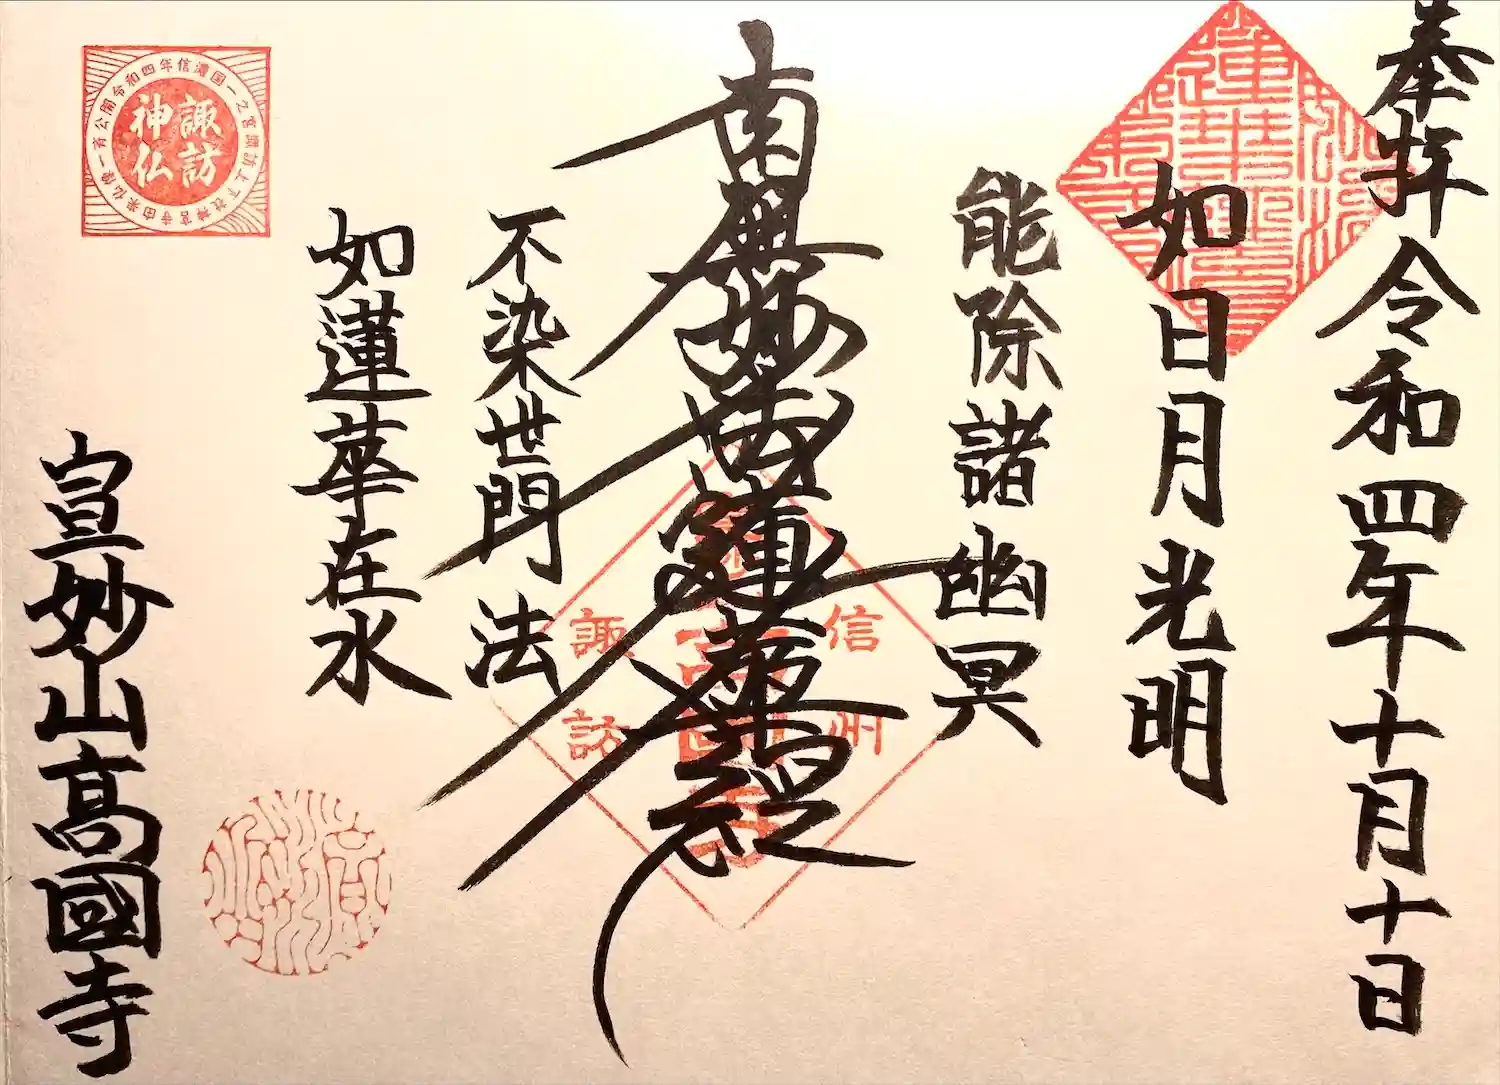 奉拝 令和四年十月十日
如日月光明
能除諸幽冥
南無妙法蓮華経
不染世間法
如蓮華在水
宣妙山高國寺
信州
諏訪
諏訪
神仏
令和四年信濃国一之宮諏訪上下社神宮寺由来仏像一斉公開